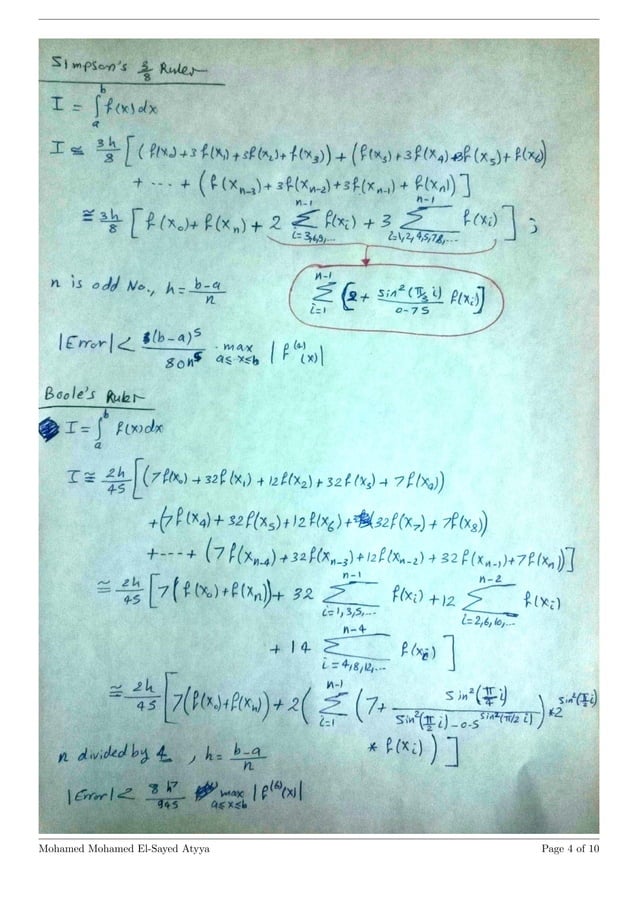 Simpson's 3/8 Ruler
I = ∫_a^b f(x) dx
I ≅ 3h/8 [ (f(x₀) + 3f(x₁) + 3f(x₂) + f(x₃)) + (f(x₃) + 3f(x₄) + 3f(x₅) + f(x₆))
+ ... + (f(xₙ₋₃) + 3f(xₙ₋₂) + 3f(xₙ₋₁) + f(xₙ)) ]
≅ 3h/8 [ f(x₀) + f(xₙ) + 2 Σ_{i=3,6,9,...}^{n-1} f(xᵢ) + 3 Σ_{i=1,2,4,5,7,8,...}^{n-1} f(xᵢ) ] ;
n is odd No., h = (b-a)/n
Σ_{i=1}^{n-1} [2 + sin²(π/3 i)/0.75 f(xᵢ)]
|Error| < 3(b-a)⁵/80n⁵ · max_{a≤x≤b} |f⁽⁴⁾(x)|
Boole's Ruler
I = ∫_a^b f(x) dx
I ≅ 2h/45 [ (7f(x₀) + 32f(x₁) + 12f(x₂) + 32f(x₃) + 7f(x₄))
+ (7f(x₄) + 32f(x₅) + 12f(x₆) + (32f(x₇) + 7f(x₈))
+ --- + (7f(xₙ₋₄) + 32f(xₙ₋₃) + 12f(xₙ₋₂) + 32f(xₙ₋₁) + 7f(xₙ)) ]
≅ 2h/45 [ 7(f(x₀) + f(xₙ)) + 32 Σ_{i=1,3,5,...}^{n-1} f(xᵢ) + 12 Σ_{i=2,6,10,...}^{n-2} f(xᵢ)
+ 14 Σ_{i=4,8,12,...}^{n-4} f(xᵢ) ]
≅ 2h/45 [ 7(f(x₀) + f(xₙ)) + 2( Σ_{i=1}^{n-1} (7 + sin²(π/4 i)/(sin²(π/2 i) - 0.5^{sin²(π/2 i)}) * 2^{sin²(π/2 i)})
* f(xᵢ) ) ]
n divided by 4, h = (b-a)/n
|Error| < 8h⁷/945 max_{a≤x≤b} |f⁽⁶⁾(x)|
Mohamed Mohamed El-Sayed Atyya Page 4 of 10